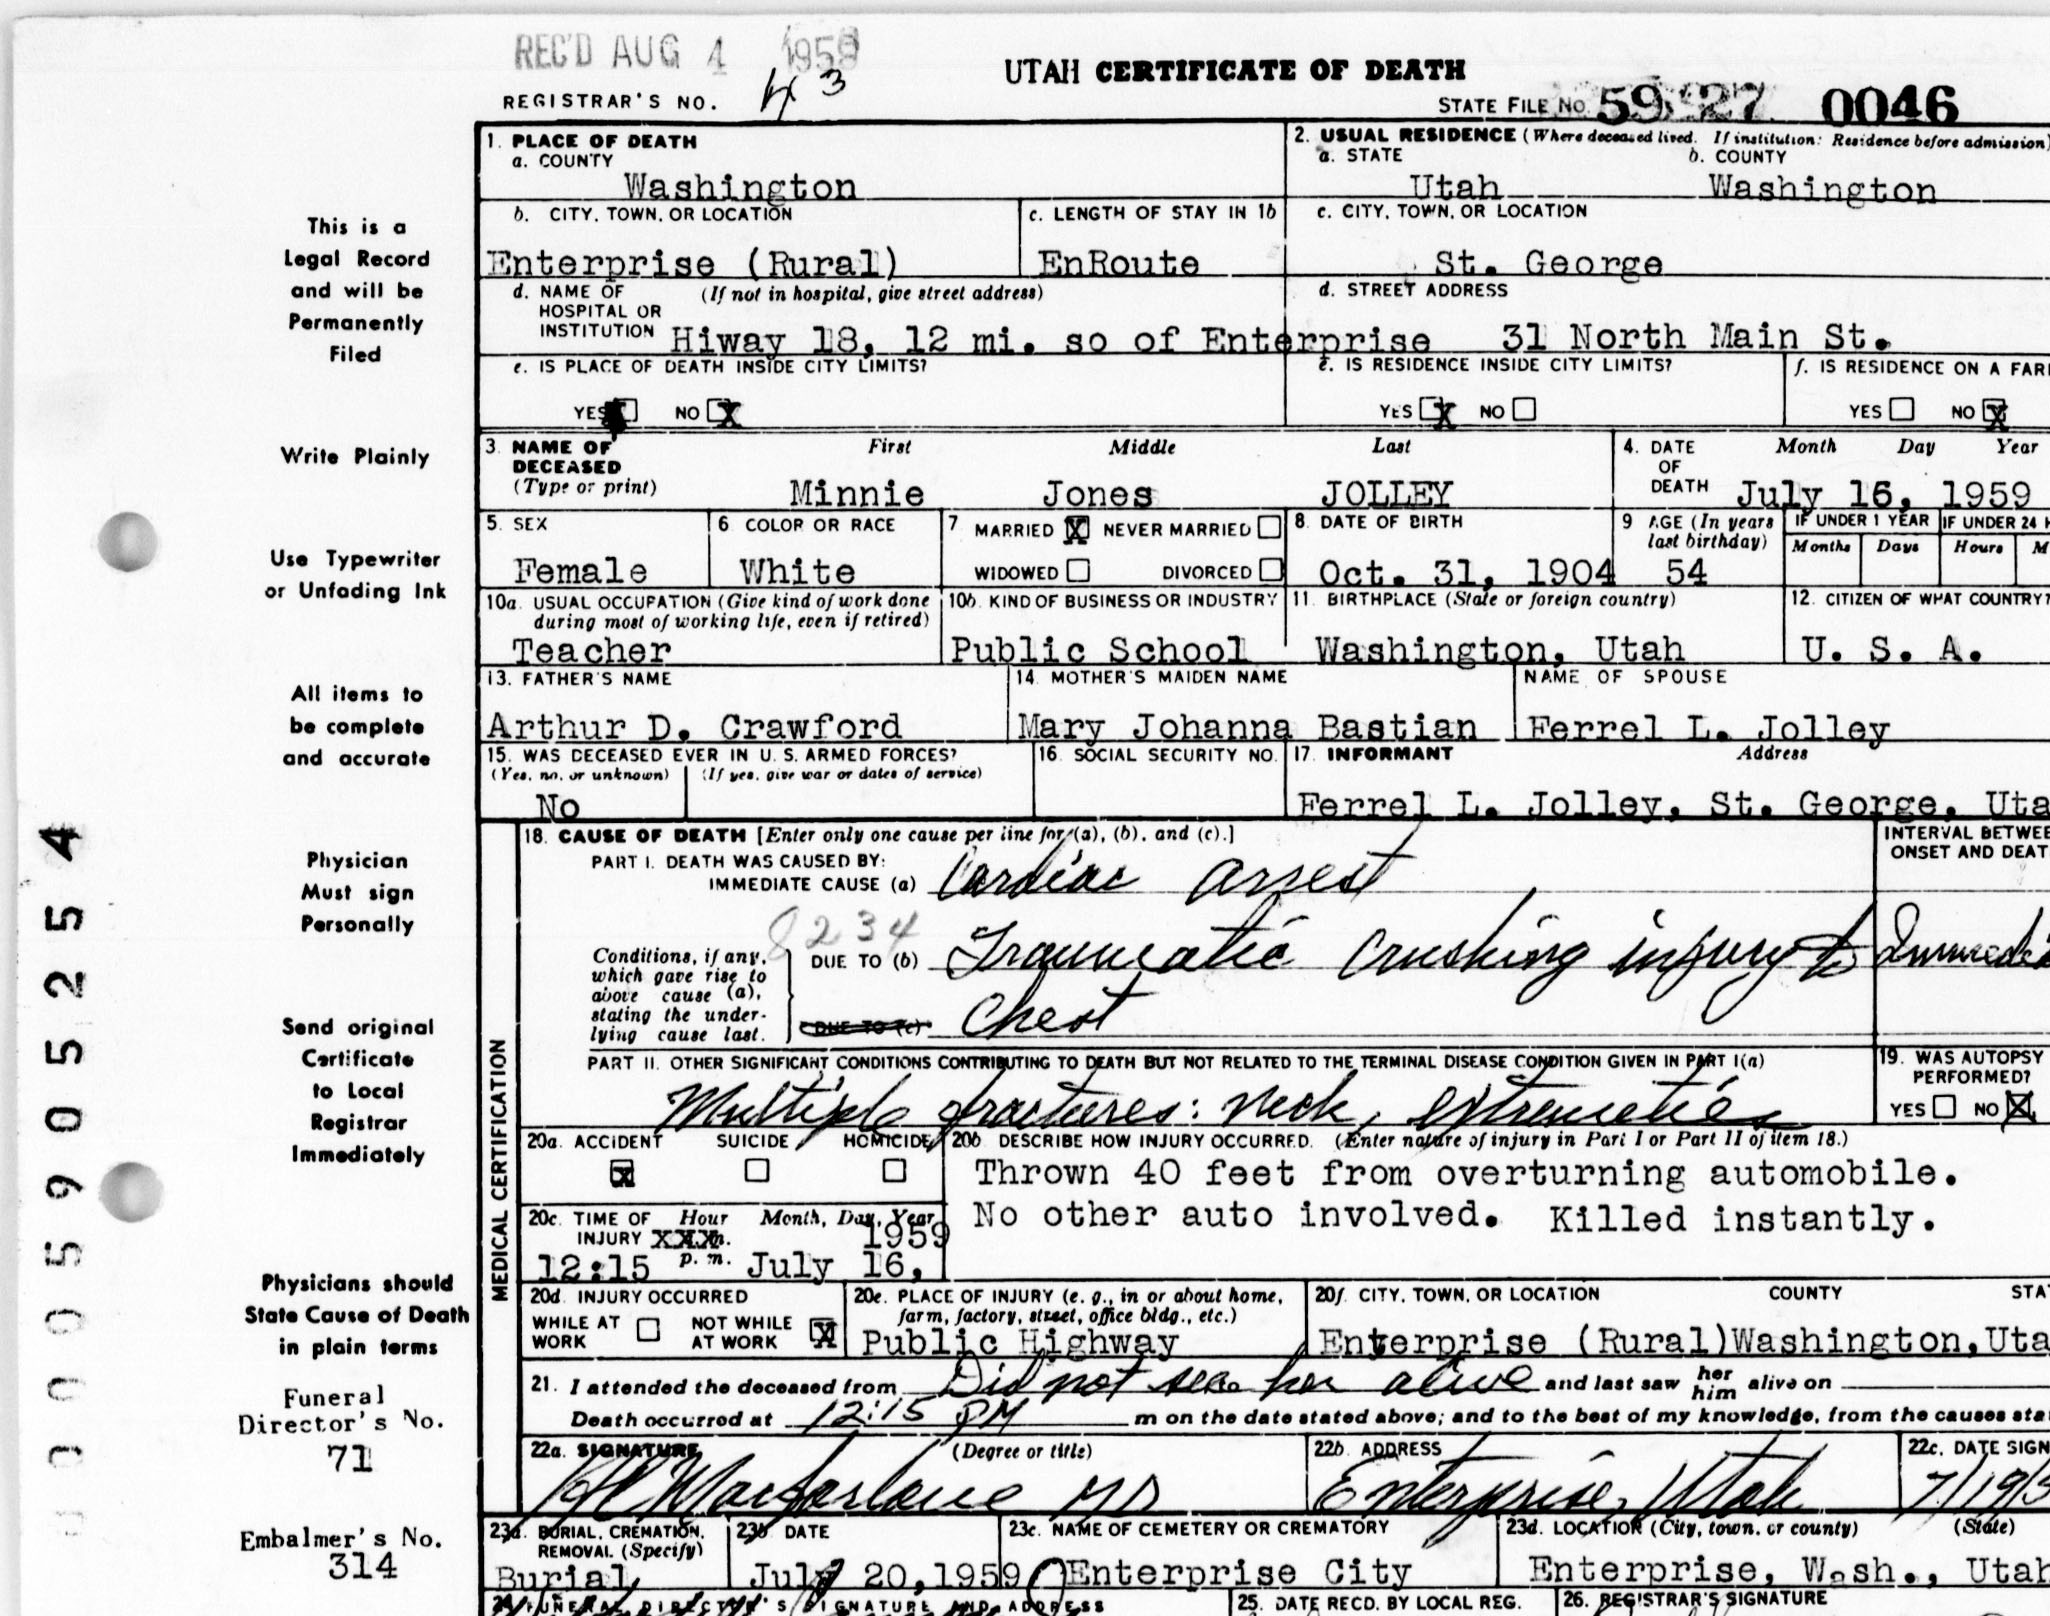 REC'D AUG 4 1959
UTAH CERTIFICATE OF DEATH
REGISTRAR'S NO. 43
STATE FILE NO. 59 27 0046
1. PLACE OF DEATH
a. COUNTY
Washington
2. USUAL RESIDENCE (Where deceased lived. If institution: Residence before admission)
a. STATE b. COUNTY
Utah Washington
b. CITY, TOWN, OR LOCATION
Enterprise (Rural)
c. LENGTH OF STAY IN 1b
EnRoute
c. CITY, TOWN, OR LOCATION
St. George
d. NAME OF (If not in hospital, give street address)
HOSPITAL OR
INSTITUTION Hiway 18, 12 mi. so of Enterprise
d. STREET ADDRESS
31 North Main St.
e. IS PLACE OF DEATH INSIDE CITY LIMITS?
YES NO X
e. IS RESIDENCE INSIDE CITY LIMITS?
YES X NO
f. IS RESIDENCE ON A FAR
YES NO X
3. NAME OF First Middle Last
DECEASED
(Type or print) Minnie Jones JOLLEY
4. DATE Month Day Year
OF
DEATH July 16, 1959
5. SEX
Female
6. COLOR OR RACE
White
7. MARRIED X NEVER MARRIED
WIDOWED DIVORCED
8. DATE OF BIRTH
Oct. 31, 1904
9 AGE (In years
last birthday)
54
IF UNDER 1 YEAR IF UNDER 24 H
Months Days Hours M
10a. USUAL OCCUPATION (Give kind of work done
during most of working life, even if retired)
Teacher
10b. KIND OF BUSINESS OR INDUSTRY
Public School
11. BIRTHPLACE (State or foreign country)
Washington, Utah
12. CITIZEN OF WHAT COUNTRY?
U. S. A.
13. FATHER'S NAME
Arthur D. Crawford
14. MOTHER'S MAIDEN NAME
Mary Johanna Bastian
NAME OF SPOUSE
Ferrel L. Jolley
15. WAS DECEASED EVER IN U. S. ARMED FORCES?
(Yes, no, or unknown) (If yes, give war or dates of service)
No
16. SOCIAL SECURITY NO.
17. INFORMANT Address
Ferrel L. Jolley, St. George, Uta
18. CAUSE OF DEATH [Enter only one cause per line for (a), (b), and (c).]
PART I. DEATH WAS CAUSED BY:
IMMEDIATE CAUSE (a) Cardiac arrest
INTERVAL BETWEE
ONSET AND DEAT
8234
Conditions, if any,
which gave rise to
above cause (a),
stating the under-
lying cause last.
DUE TO (b) Traumatic crushing injury to
DUE TO (c) Chest
Immedi
PART II. OTHER SIGNIFICANT CONDITIONS CONTRIBUTING TO DEATH BUT NOT RELATED TO THE TERMINAL DISEASE CONDITION GIVEN IN PART I(a)
Multiple fractures: neck, extremities
19. WAS AUTOPSY
PERFORMED?
YES NO X
20a. ACCIDENT SUICIDE HOMICIDE
X
20b. DESCRIBE HOW INJURY OCCURRED. (Enter nature of injury in Part I or Part II of item 18.)
Thrown 40 feet from overturning automobile.
No other auto involved. Killed instantly.
20c. TIME OF Hour Month, Day, Year
INJURY XXX m. 1959
12:15 p. m. July 16,
20d. INJURY OCCURRED
WHILE AT WORK NOT WHILE AT WORK X
20e. PLACE OF INJURY (e. g., in or about home,
farm, factory, street, office bldg., etc.)
Public Highway
20f. CITY, TOWN, OR LOCATION COUNTY STA
Enterprise (Rural)Washington,Uta
21. I attended the deceased from Did not see her alive and last saw her him alive on
Death occurred at 12:15 PM m on the date stated above; and to the best of my knowledge, from the causes sta
22a. SIGNATURE (Degree or title)
Macfarlane MD
22b. ADDRESS
Enterprise, Utah
22c. DATE SIGN
7/19/5
23a. BURIAL, CREMATION,
REMOVAL (Specify)
Burial
23b. DATE
July 20,1959
23c. NAME OF CEMETERY OR CREMATORY
Enterprise City
23d. LOCATION (City, town, or county) (State)
Enterprise, Wash., Utah
24. FUNERAL DIRECTOR'S SIGNATURE AND ADDRESS
25. DATE RECD. BY LOCAL REG.
26. REGISTRAR'S SIGNATURE
This is a
Legal Record
and will be
Permanently
Filed
Write Plainly
Use Typewriter
or Unfading Ink
All items to
be complete
and accurate
Physician
Must sign
Personally
Send original
Certificate
to Local
Registrar
Immediately
Physicians should
State Cause of Death
in plain terms
Funeral
Director's No.
71
Embalmer's No.
314
MEDICAL CERTIFICATION
0005905254